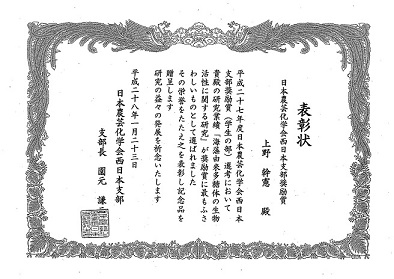 表彰状
日本農芸化学会西日本支部奨励賞
上野 幹憲 殿
平成二十七年度日本農芸化学会西日本
支部奨励賞(学生の部)選考において
貴殿の研究業績『海藻由来多糖体の生物
活性に関する研究』が奨励賞に最もふさ
わしいものとして選ばれました
その栄誉をたたえ之を表彰し記念品を
贈呈します
研究の益々の発展を祈念いたします
平成二十八年一月二十三日
日本農芸化学会西日本支部
支部長 園元 謙